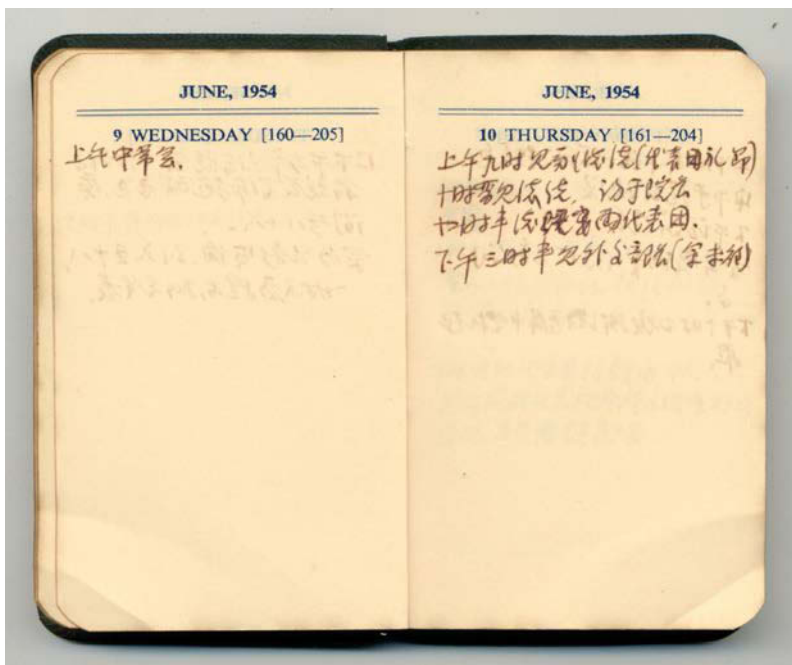 JUNE, 1954
9 WEDNESDAY [160—205]
上午中常会.
JUNE, 1954
10 THURSDAY [161—204]
上午九时见副总统(代表团礼节)
十时晋见总统. 访于院长
十一时半 两代表团.
下午三时半见外交部长(宋未往)